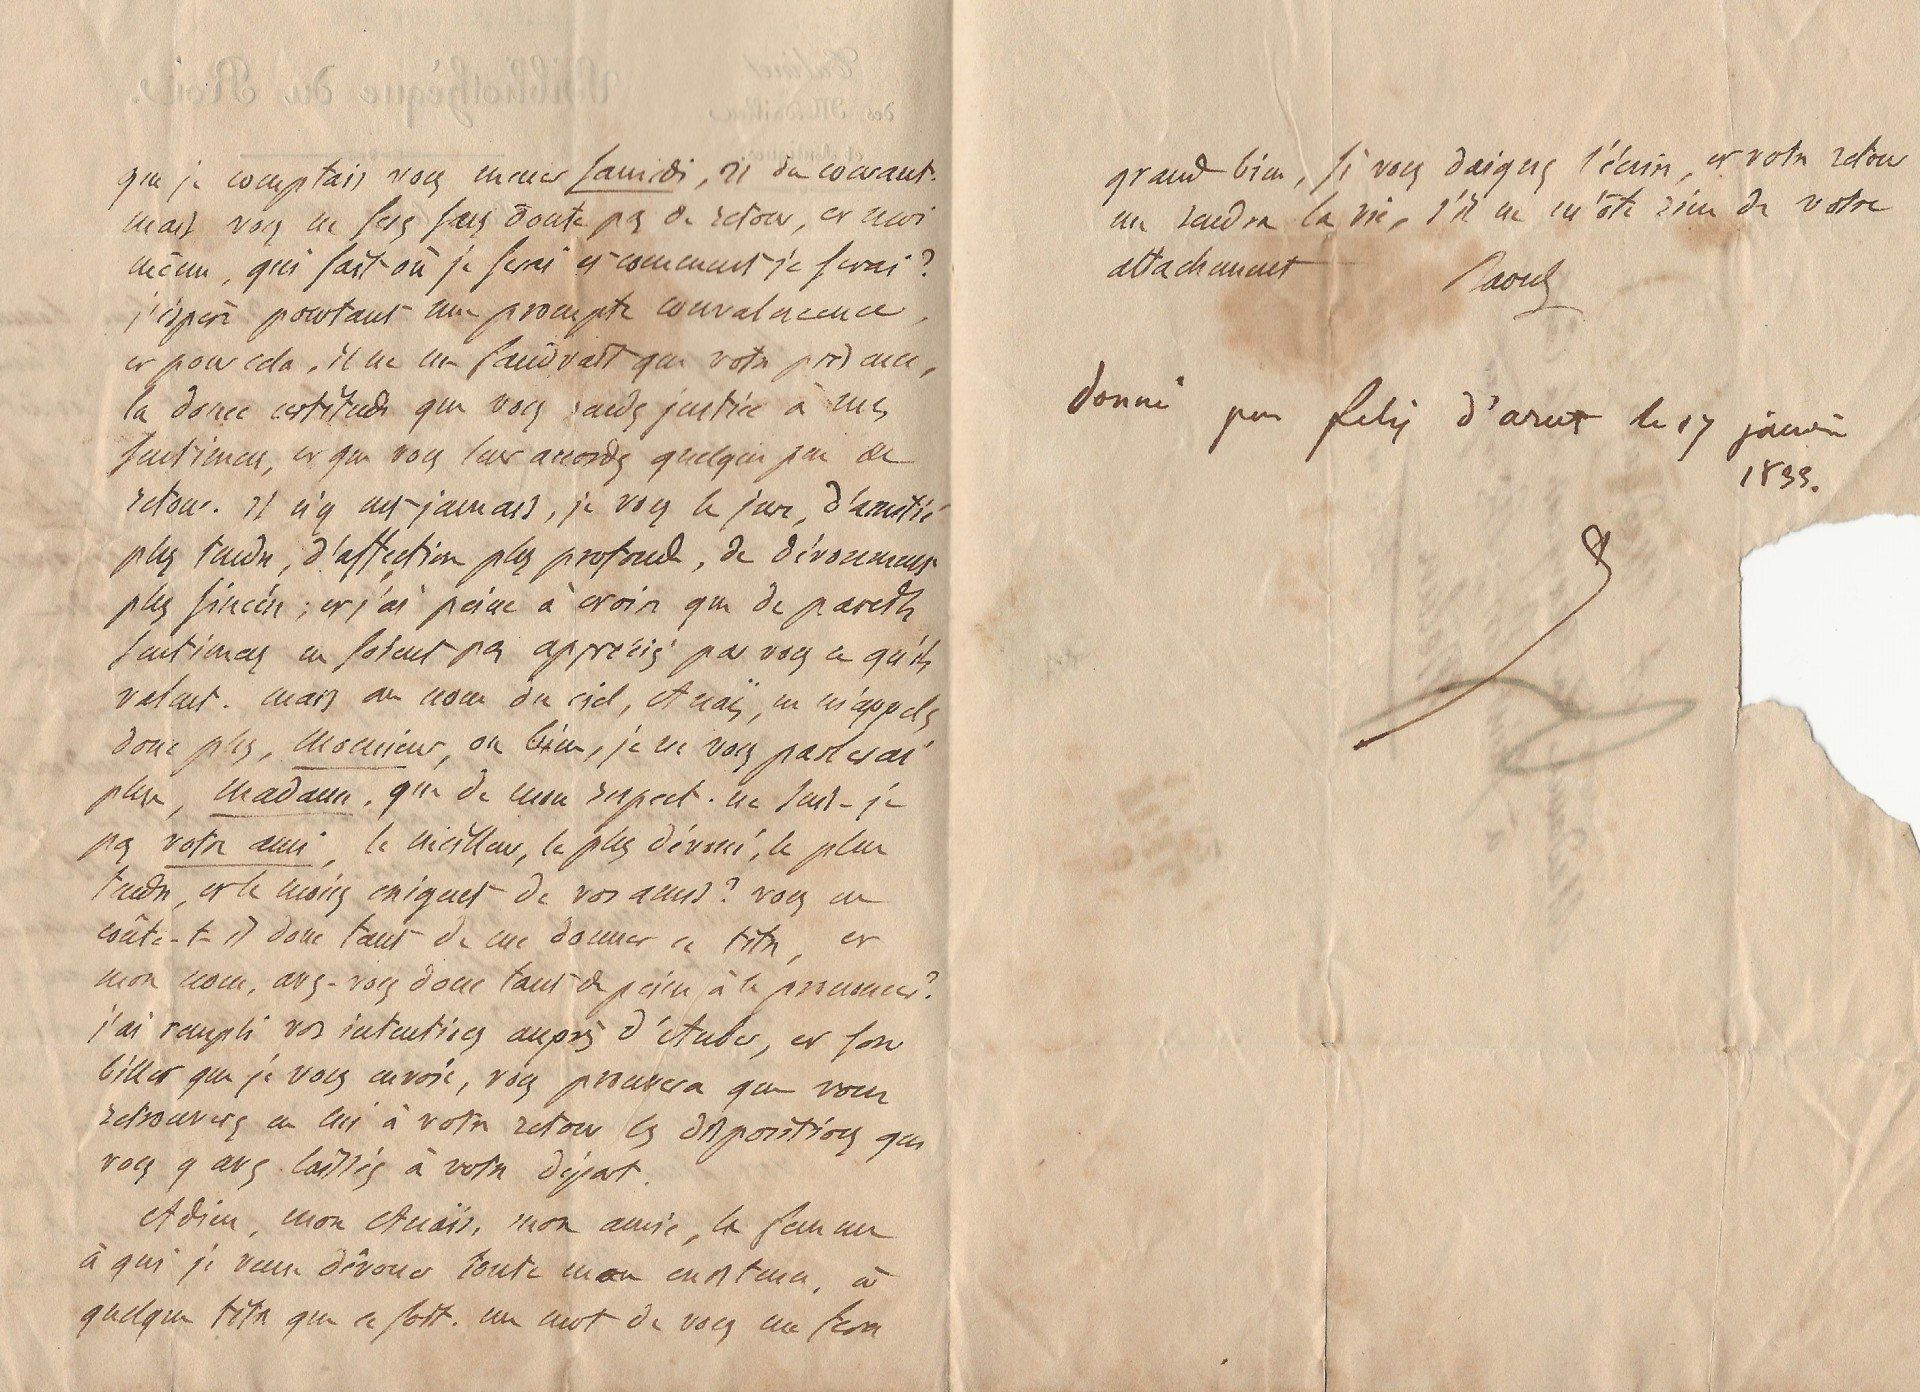 que je comptais vous mener samedi, 21 du courant.
mais vous ne serez sans doute pas de retour, et moi
même, qui sait où je serai et comment je serai?
j'espère pourtant une prompte convalescence,
et pour cela, il ne me faudrait que votre présence,
la douce certitude que vous rendez justice à mes
sentimens, et que vous leur accordez quelque peu de
retour. Il n'y eut jamais, je vous le jure, d'amitié
plus tendre, d'affection plus profonde, de dévouement
plus sincère; et j'ai peine à croire que de pareils
sentimens ne soient pas appréciés par vous ce qu'ils
valent. mais au nom du ciel, Anaïs, ne m'appelez
donc plus, monsieur, ou bien, je ne vous parlerai
plus, madame, que de mon respect. ne suis-je
pas votre ami, le meilleur, le plus dévoué, le plus
tendre, et le moins exigeant de vos amis? vous en
coûte-t-il donc tant de me donner ce titre, et
mon nom, avez-vous donc tant de peine à le prononcer?
j'ai rempli vos intentions auprès d'Auber, et son
billet que je vous envoie, vous prouvera que vous
retrouverez en lui à votre retour les dispositions que
vous y avez laissées à votre départ.
Adieu, mon Anaïs, mon amie, la femme
à qui je veux dévouer toute mon existence, à
quelque titre que ce soit. un mot de vous me fera
grand bien, si vous daignez l'écrire, et votre retour
me rendra la vie, s'il ne m'ôte rien de votre
attachement
Raoul
donné par felix d'arvet le 17 janvier
1833.
Bibliothèque du Roi.
Cabinet
des Médailles
et Antiques